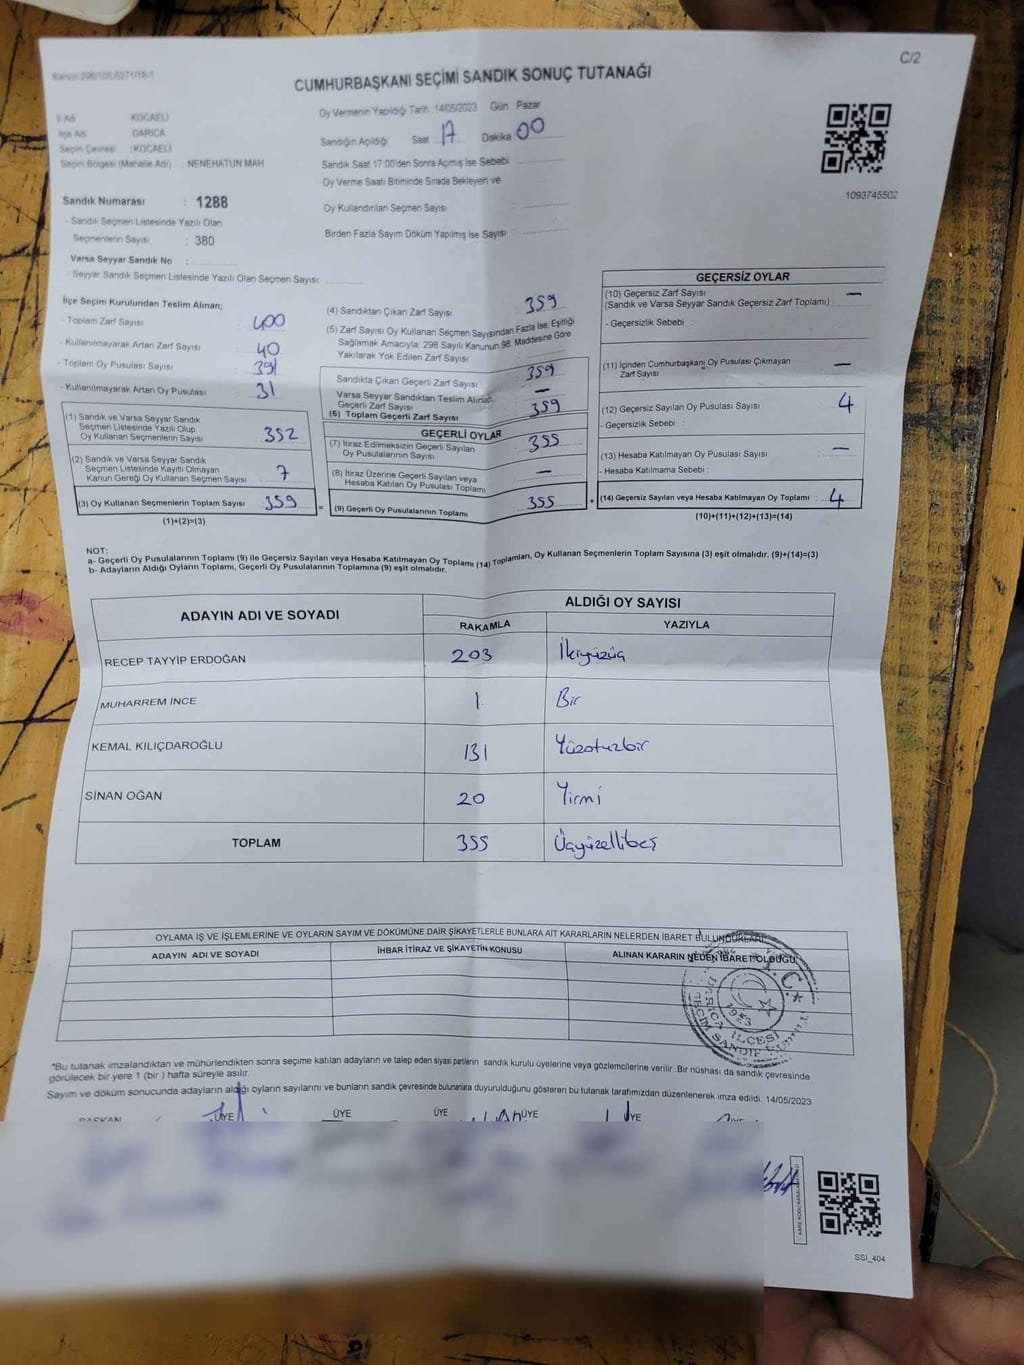 C/2
CUMHURBAŞKANI SEÇİMİ SANDIK SONUÇ TUTANAĞI
İl Adı KOCAELİ
İlçe Adı DARICA
Seçim Çevresi : KOCAELİ
Seçim Bölgesi (Mahalle Adı) NENEHATUN MAH
Sandık Numarası : 1288
- Sandık Seçmen Listesinde Yazılı Olan
Seçmenlerin Sayısı : 380
Varsa Seyyar Sandık No :
- Seyyar Sandık Seçmen Listesinde Yazılı Olan Seçmen Sayısı:
Oy Vermenin Yapıldığı Tarih :14/05/2023 Gün : Pazar
Sandığın Açıldığı Saat 17 Dakika 00
Sandık Saat 17:00'den Sonra Açılmış İse Sebebi
Oy Verme Saati Bitiminde Sırada Bekleyen ve
Oy Kullandırılan Seçmen Sayısı :
Birden Fazla Sayım Döküm Yapılmış İse Sayısı :
1093745502
İlçe Seçim Kurulundan Teslim Alınan;
- Toplam Zarf Sayısı : 400
- Kullanılmayarak Artan Zarf Sayısı : 40
- Toplam Oy Pusulası Sayısı : 391
- Kullanılmayarak Artan Oy Pusulası : 31
(1) Sandık ve Varsa Seyyar Sandık
Seçmen Listesinde Yazılı Olup
Oy Kullanan Seçmenlerin Sayısı 352
(2) Sandık ve Varsa Seyyar Sandık
Seçmen Listesinde Kayıtlı Olmayan
Kanun Gereği Oy Kullanan Seçmen Sayısı 7
(3) Oy Kullanan Seçmenlerin Toplam Sayısı 359
(1)+(2)=(3)
(4) Sandıktan Çıkan Zarf Sayısı : 359
(5) Zarf Sayısı Oy Kullanan Seçmen Sayısından Fazla İse, Eşitliği
Sağlamak Amacıyla, 298 Sayılı Kanunun 98. Maddesine Göre
Yakılarak Yok Edilen Zarf Sayısı
Sandıkta Çıkan Geçerli Zarf Sayısı : 359
Varsa Seyyar Sandıktan Teslim Alınan
Geçerli Zarf Sayısı : —
(6) Toplam Geçerli Zarf Sayısı 359
GEÇERLİ OYLAR
(7) İtiraz Edilmeksizin Geçerli Sayılan
Oy Pusulalarının Sayısı 355
(8) İtiraz Üzerine Geçerli Sayılan veya
Hesaba Katılan Oy Pusulası Toplamı —
= (9) Geçerli Oy Pusulalarının Toplamı 355 +
GEÇERSİZ OYLAR
(10) Geçersiz Zarf Sayısı —
(Sandık ve Varsa Seyyar Sandık Geçersiz Zarf Toplamı) :
- Geçersizlik Sebebi :
(11) İçinden Cumhurbaşkanı Oy Pusulası Çıkmayan
Zarf Sayısı : —
(12) Geçersiz Sayılan Oy Pusulası Sayısı : 4
- Geçersizlik Sebebi :
(13) Hesaba Katılmayan Oy Pusulası Sayısı : —
- Hesaba Katılmama Sebebi :
(14) Geçersiz Sayılan veya Hesaba Katılmayan Oy Toplamı : 4
(10)+(11)+(12)+(13)=(14)
NOT:
a- Geçerli Oy Pusulalarının Toplamı (9) ile Geçersiz Sayılan veya Hesaba Katılmayan Oy Toplamı (14) Toplamları, Oy Kullanan Seçmenlerin Toplam Sayısına (3) eşit olmalıdır. (9)+(14)=(3)
b- Adayların Aldığı Oyların Toplamı, Geçerli Oy Pusulalarının Toplamına (9) eşit olmalıdır.
ADAYIN ADI VE SOYADI ALDIĞI OY SAYISI
RAKAMLA YAZIYLA
RECEP TAYYİP ERDOĞAN 203 İkiyüzüç
MUHARREM İNCE 1 Bir
KEMAL KILIÇDAROĞLU 131 Yüzotuzbir
SİNAN OĞAN 20 Yirmi
TOPLAM 355 Üçyüzellibeş
OYLAMA İŞ VE İŞLEMLERİNE VE OYLARIN SAYIM VE DÖKÜMÜNE DAİR ŞİKAYETLERLE BUNLARA AİT KARARLARIN NELERDEN İBARET BULUNDUKLARI
ADAYIN ADI VE SOYADI İHBAR İTİRAZ VE ŞİKAYETİN KONUSU ALINAN KARARIN NEDEN İBARET OLDUĞU
T.C. DARICA İLÇESİ
1953
*Bu tutanak imzalandıktan ve mühürlendikten sonra seçime katılan adayların ve talep eden siyasi partilerin sandık kurulu üyelerine veya gözlemcilerine verilir. Bir nüshası da sandık çevresinde
görülecek bir yere 1 (bir ) hafta süreyle asılır.
Sayım ve döküm sonucunda adayların aldığı oyların sayılarını ve bunların sandık çevresinde bulunanlara duyurulduğunu gösteren bu tutanak tarafımızdan düzenlenerek imza edildi. 14/05/2023
BAŞKAN ÜYE ÜYE ÜYE ÜYE ÜYE ÜYE
SSI_404